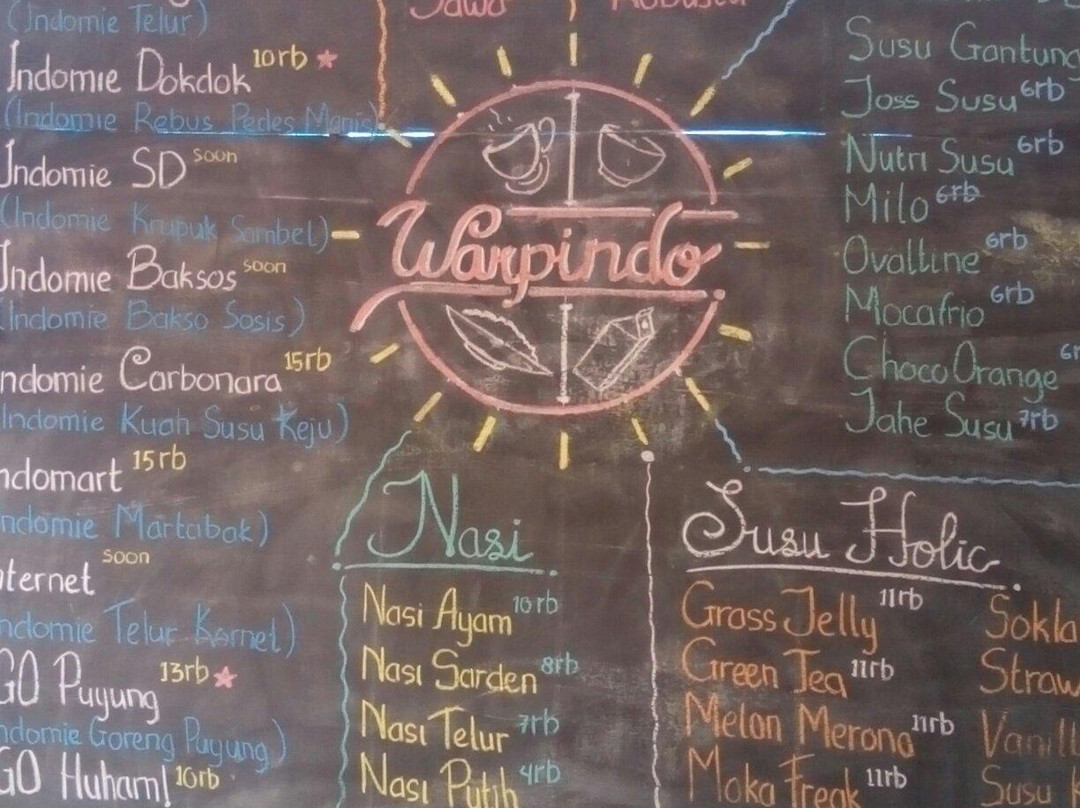 (Indomie Telur)
Indomie Dokdok 10rb
(Indomie Rebus Pedes Manis)
Indomie SD soon
(Indomie Krupuk Sambel)
Indomie Baksos soon
(Indomie Bakso Sosis)
ndomie Carbonara 15rb
Indomie Kuah Susu Keju)
ndomart 15rb
ndomie Martabak)
ternet soon
ndomie Telur Kornet)
GO Puyung 13rb
ndomie Goreng Puyung)
GO Huham! 10rb
Jawa
Robusta
Warpindo
Nasi
Nasi Ayam 10rb
Nasi Sarden 8rb
Nasi Telur 7rb
Nasi Putih 4rb
Susu Gantung
Joss Susu 6rb
Nutri Susu 6rb
Milo 6rb
Ovaltine 6rb
Mocafrio 6rb
Choco Orange 6r
Jahe Susu 7rb
Susu Holic
Grass Jelly 11rb
Green Tea 11rb
Melon Merona 11rb
Moka Freak 11rb
Sokla
Straw
Vanill
Susu